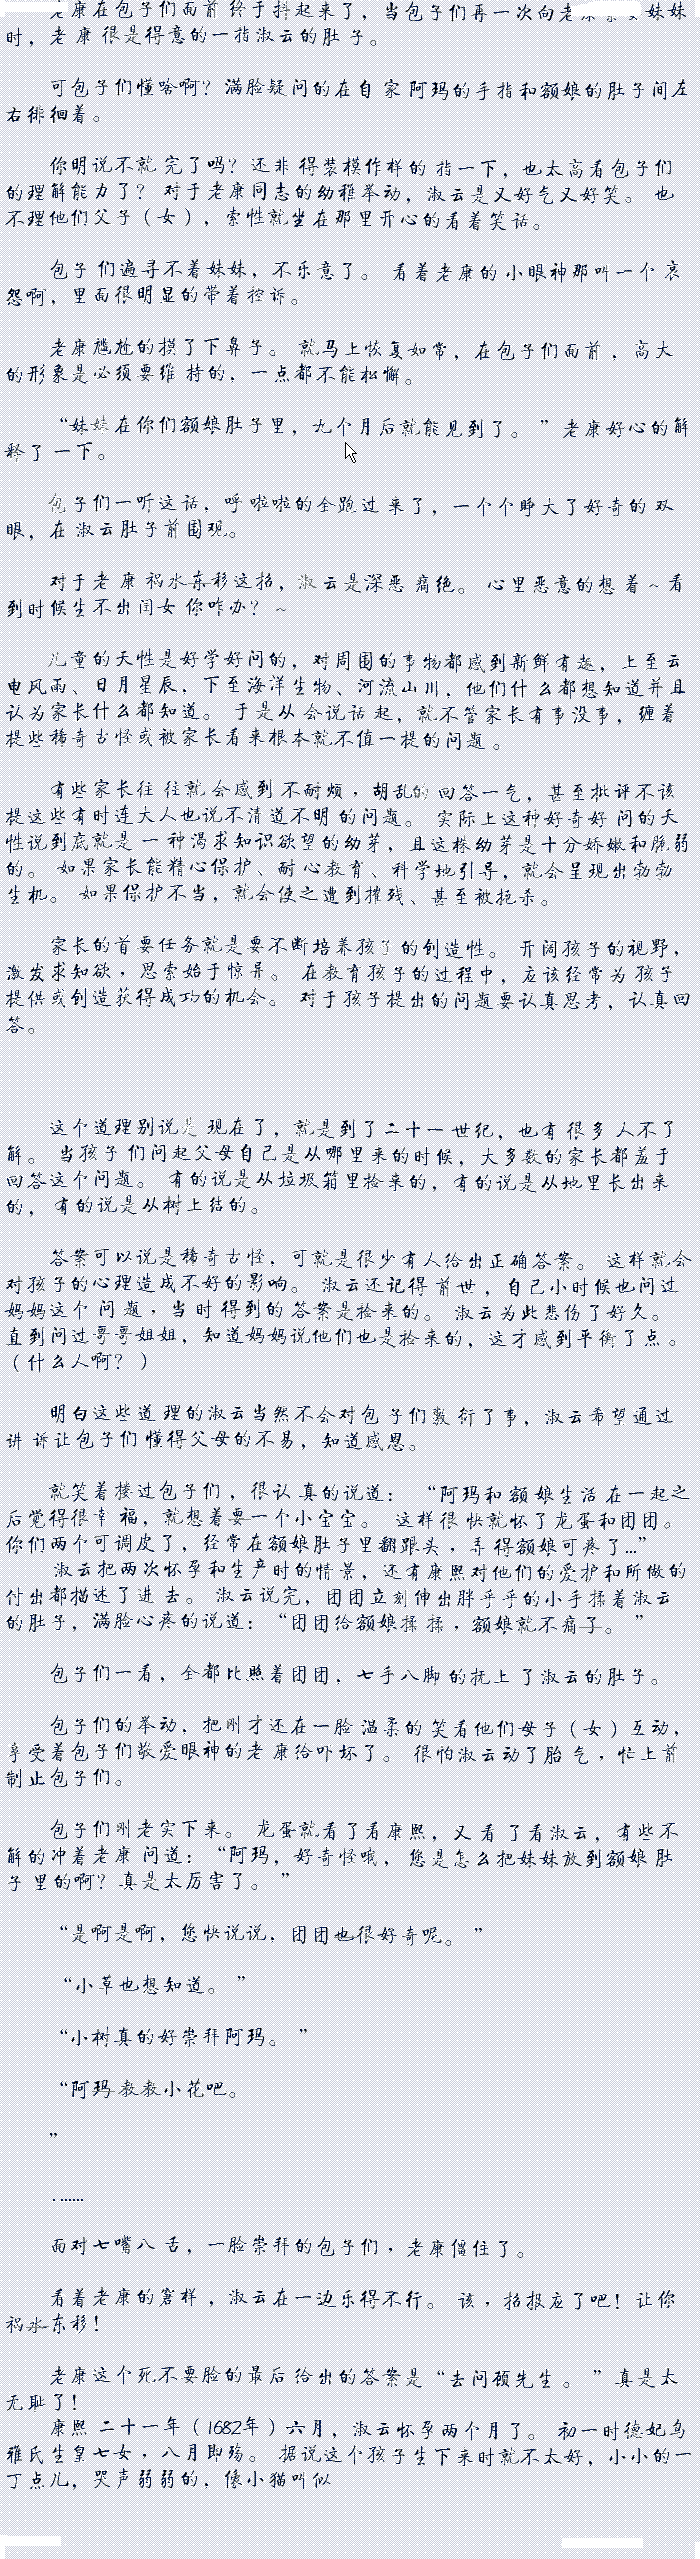 老康在包子们面前终于抖起来了，当包子们再一次向老康索要妹妹
时，老康很是得意的一指淑云的肚子。
可包子们懂啥啊？满脸疑问的在自家阿玛的手指和额娘的肚子间左
右徘徊着。
你明说不就完了吗？还非得装模作样的指一下，也太高看包子们
的理解能力了？对于老康同志的幼稚举动，淑云是又好气又好笑。也
不理他们父子（女），索性就坐在那里开心的看着笑话。
包子们遍寻不着妹妹，不乐意了。看着老康的小眼神那叫一个哀
怨啊，里面很明显的带着控诉。
老康尴尬的摸了下鼻子。就马上恢复如常，在包子们面前，高大
的形象是必须要维持的，一点都不能松懈。
“妹妹在你们额娘肚子里，九个月后就能见到了。”老康好心的解
释了一下。
包子们一听这话，呼啦啦的全跑过来了，一个个睁大了好奇的双
眼，在淑云肚子前围观。
对于老康祸水东移这招，淑云是深恶痛绝。心里恶意的想着～看
到时候生不出闺女你咋办？～
儿童的天性是好学好问的，对周围的事物都感到新鲜有趣，上至云
电风雨、日月星辰，下至海洋生物、河流山川，他们什么都想知道并且
认为家长什么都知道。于是从会说话起，就不管家长有事没事，缠着
提些稀奇古怪或被家长看来根本就不值一提的问题。
有些家长往往就会感到不耐烦，胡乱的回答一气，甚至批评不该
提这些有时连大人也说不清道不明的问题。实际上这种好奇好问的天
性说到底就是一种渴求知识欲望的幼芽，且这株幼芽是十分娇嫩和脆弱
的。如果家长能精心保护、耐心教育、科学地引导，就会呈现出勃勃
生机。如果保护不当，就会使之遭到摧残、甚至被扼杀。
家长的首要任务就是要不断培养孩子的创造性。开阔孩子的视野，
激发求知欲，思索始于惊异。在教育孩子的过程中，应该经常为孩子
提供或创造获得成功的机会。对于孩子提出的问题要认真思考，认真回
答。
这个道理别说是现在了，就是到了二十一世纪，也有很多人不了
解。当孩子们问起父母自己是从哪里来的时候，大多数的家长都羞于
回答这个问题。有的说是从垃圾箱里捡来的，有的说是从地里长出来
的，有的说是从树上结的。
答案可以说是稀奇古怪，可就是很少有人给出正确答案。这样就会
对孩子的心理造成不好的影响。淑云还记得前世，自己小时候也问过
妈妈这个问题，当时得到的答案是捡来的。淑云为此悲伤了好久。
直到问过哥哥姐姐，知道妈妈说他们也是捡来的，这才感到平衡了点。
（什么人啊？）
明白这些道理的淑云当然不会对包子们敷衍了事，淑云希望通过
讲诉让包子们懂得父母的不易，知道感恩。
就笑着搂过包子们，很认真的说道：“阿玛和额娘生活在一起之
后觉得很幸福，就想着要一个小宝宝。这样很快就怀了龙蛋和团团。
你们两个可调皮了，经常在额娘肚子里翻跟头，弄得额娘可疼了…”
淑云把两次怀孕和生产时的情景，还有康熙对他们的爱护和所做的
付出都描述了进去。淑云说完，团团立刻伸出胖乎乎的小手揉着淑云
的肚子，满脸心疼的说道：“团团给额娘揉揉，额娘就不痛了。”
包子们一看，全都比照着团团，七手八脚的抚上了淑云的肚子。
包子们的举动，把刚才还在一脸温柔的笑看他们母子（女）互动，
享受着包子们敬爱眼神的老康给吓坏了。很怕淑云动了胎气，忙上前
制止包子们。
包子们刚老实下来。龙蛋就看了看康熙，又看了看淑云，有些不
解的冲着老康问道：“阿玛，好奇怪哦，您是怎么把妹妹放到额娘肚
子里的啊？真是太厉害了。”
“是啊是啊，您快说说，团团也很好奇呢。”
“小草也想知道。”
“小树真的好崇拜阿玛。”
“阿玛教教小花吧。
”
.……
面对七嘴八舌，一脸崇拜的包子们，老康僵住了。
看着老康的窘样，淑云在一边乐得不行。该，招报应了吧！让你
祸水东移！
老康这个死不要脸的最后给出的答案是“去问顾先生。”真是太
无耻了！
康熙二十一年（1682年）六月，淑云怀孕两个月了。初一时德妃乌
雅氏生皇七女，八月即殇。据说这个孩子生下来时就不太好，小小的一
丁点儿，哭声弱弱的，像小猫叫似